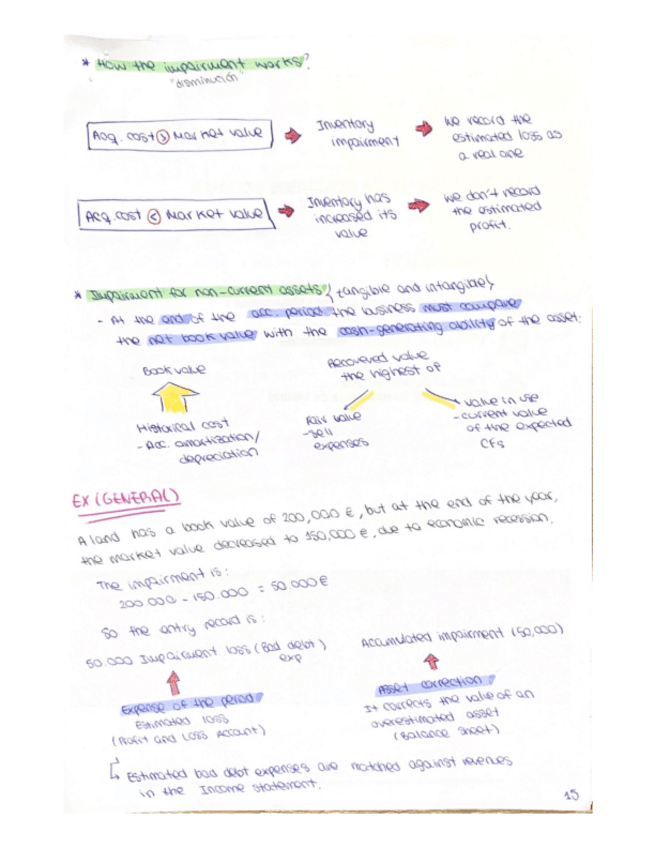 * How the impairment works?
"disminución"
Acq. cost > Market value
Inventory
impairment
we record the
estimated loss as
a real one
Acq. cost < Market value
Inventory has
increased its
value
we don't record
the estimated
profit.
* Impairment for non-current assets (tangible and intangible)
- At the end of the acc. period the business must compare
the net book value with the cash-generating ability of the asset:
Book value
Historical cost
- Acc. amortization/
depreciation
Recovered value
the highest of
Fair value
- sell
expenses
Value in use
- current value
of the expected
CFs
EX (GENERAL)
A land has a book value of 200,000 €, but at the end of the year,
the market value decreased to 150,000 €, due to economic recession.
The impairment is:
200.000 - 150.000 = 50.000 €
So the entry record is:
50.000 Impairment loss (Bad debt)
exp
Accumulated impairment (50,000)
Expense of the period
Estimated loss
(Profit and Loss Account)
Asset correction
It corrects the value of an
overestimated asset
(Balance Sheet)
Estimated bad debt expenses are matched against revenues
in the Income statement.
15